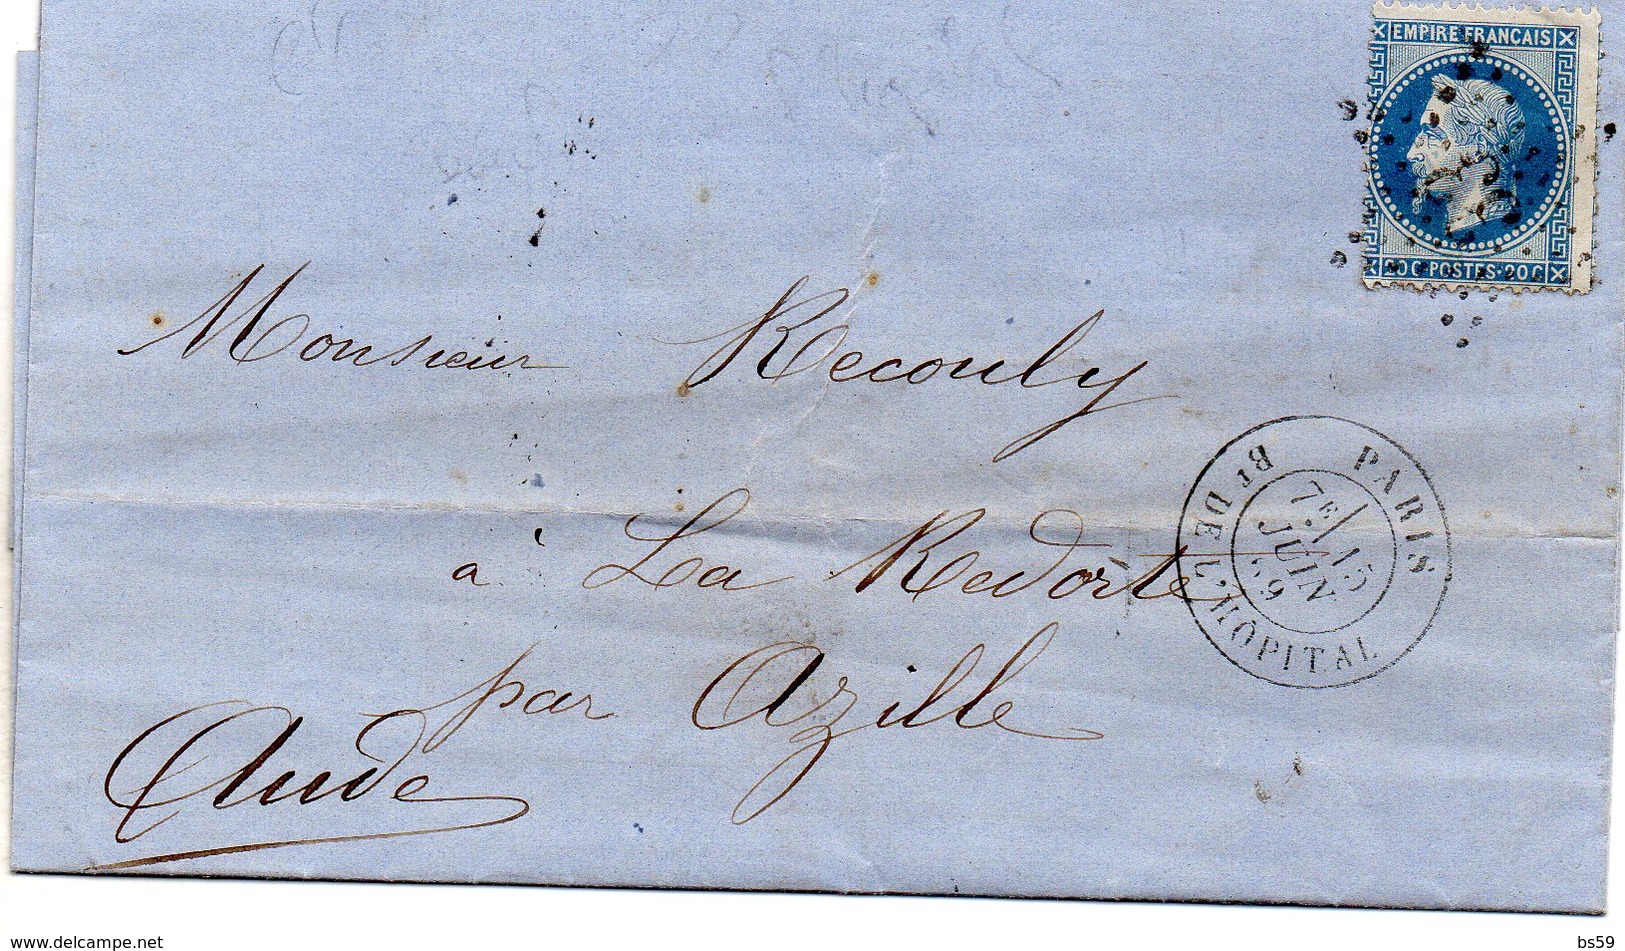 EMPIRE FRANÇAIS
20 C · POSTES · 20 C
Monsieur Recouly
à La Redorte
par Azille
Aude
PARIS
Bt DE L'HÔPITAL
7E 15
JUIN
69
www.delcampe.net
bs59